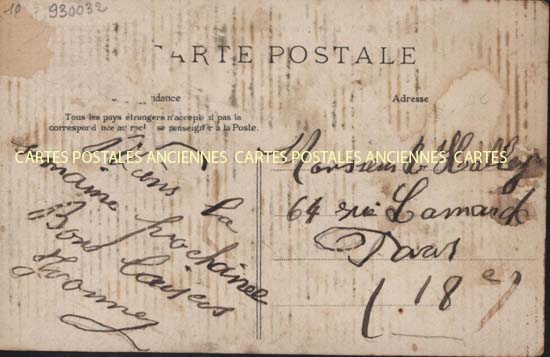 10 930032
CARTE POSTALE
Correspondance
Tous les pays étrangers n'acceptent pas la
correspondance au recto se renseigner à la Poste.
Adresse
CARTES POSTALES ANCIENNES CARTES POSTALES ANCIENNES CARTES
Viens la
semaine prochaine
Bons baisers
Yvonne
Monsieur
64 rue Lamarck
Paris
(18e)